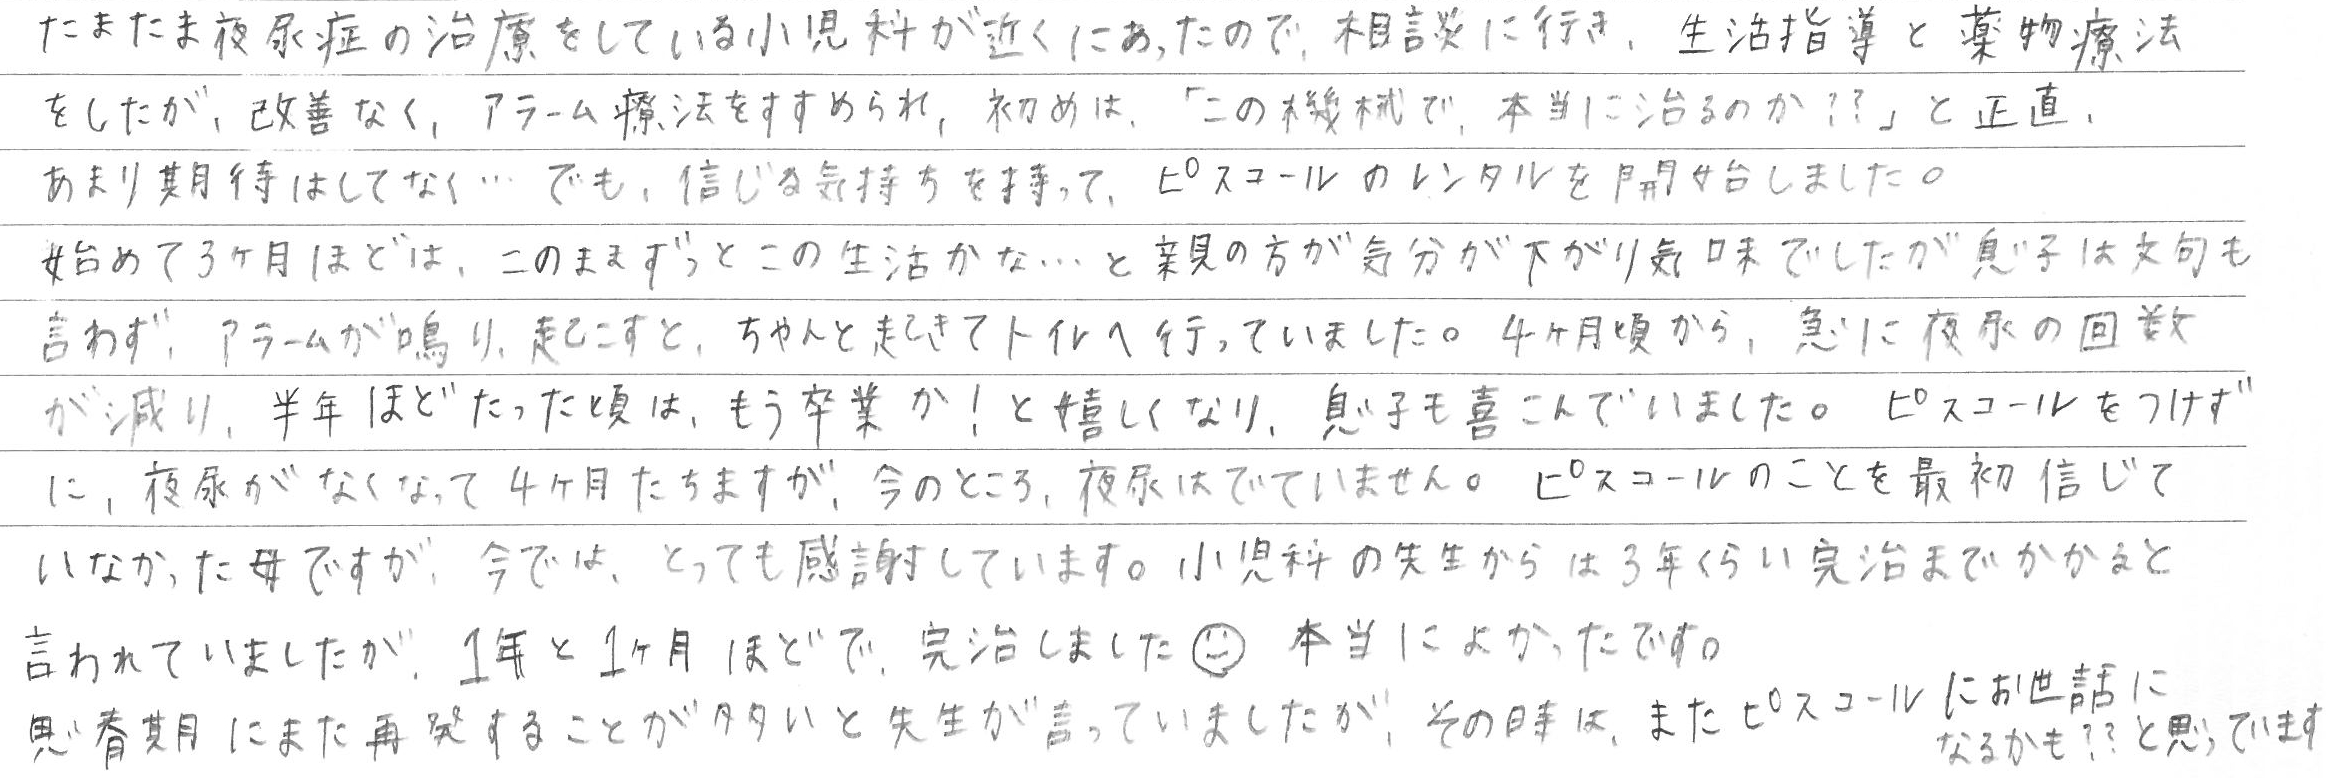 たまたま夜尿症の治療をしている小児科が近くにあったので、相談に行き、生活指導と薬物療法
をしたが、改善なく、アラーム療法をすすめられ、初めは、「この機械で、本当に治るのか??」と正直、
あまり期待はしてなく… でも、信じる気持ちを持って、ピスコールのレンタルを開始しました。
始めて3ヶ月ほどは、このままずっとこの生活かな…と親の方が気分が下がり気味でしたが息子は文句も
言わず、アラームが鳴り、起こすと、ちゃんと起きてトイレへ行っていました。4ヶ月頃から、急に夜尿の回数
が減り、半年ほどたった頃は、もう卒業か!と嬉しくなり、息子も喜こんでいました。ピスコールをつけず
に、夜尿がなくなって4ヶ月たちますが、今のところ、夜尿はでていません。ピスコールのことを最初信じて
いなかった母ですが、今では、とっても感謝しています。小児科の先生からは3年くらい完治までかかると
言われていましたが、1年と1ヶ月ほどで、完治しました☺ 本当によかったです。
思春期にまた再発することが多いと先生が言っていましたが、その時は、またピスコールにお世話に
なるかも??と思っています